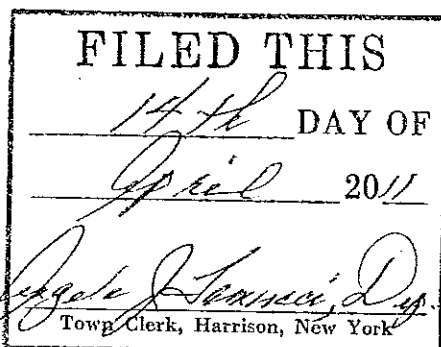 FILED THIS
14th DAY OF
April 2011
Angela J. Dep.
Town Clerk, Harrison, New York